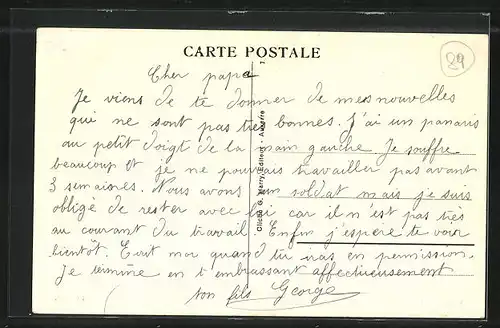 CARTE POSTALE
89
Cher papa
Je viens de te donner de mes nouvelles
qui ne sont pas très bonnes. J'ai un panaris
au petit doigt de la main gauche Je souffre
beaucoup et je ne pourrais travailler pas avant
3 semaines. Nous avons un soldat mais je suis
obligé de rester avec lui car il n'est pas très
au courant du travail. Enfin j'espère te voir
bientôt. Ecrit moi quand tu iras en permission.
Je termine en t'embrassant affectueusement
ton fils George
Cliché G. Marry, Editeur - Auxerre